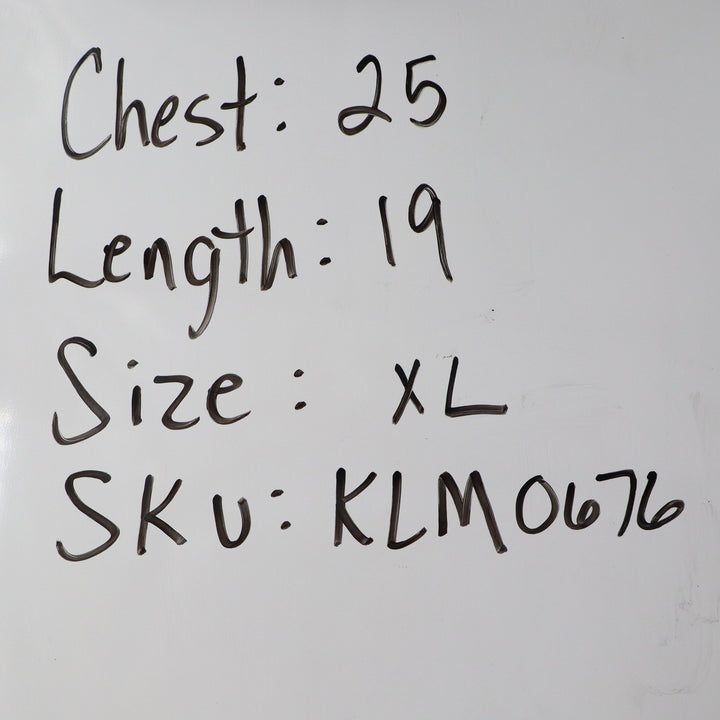 Chest: 25
Length: 19
Size: XL
SKU: KLM0676